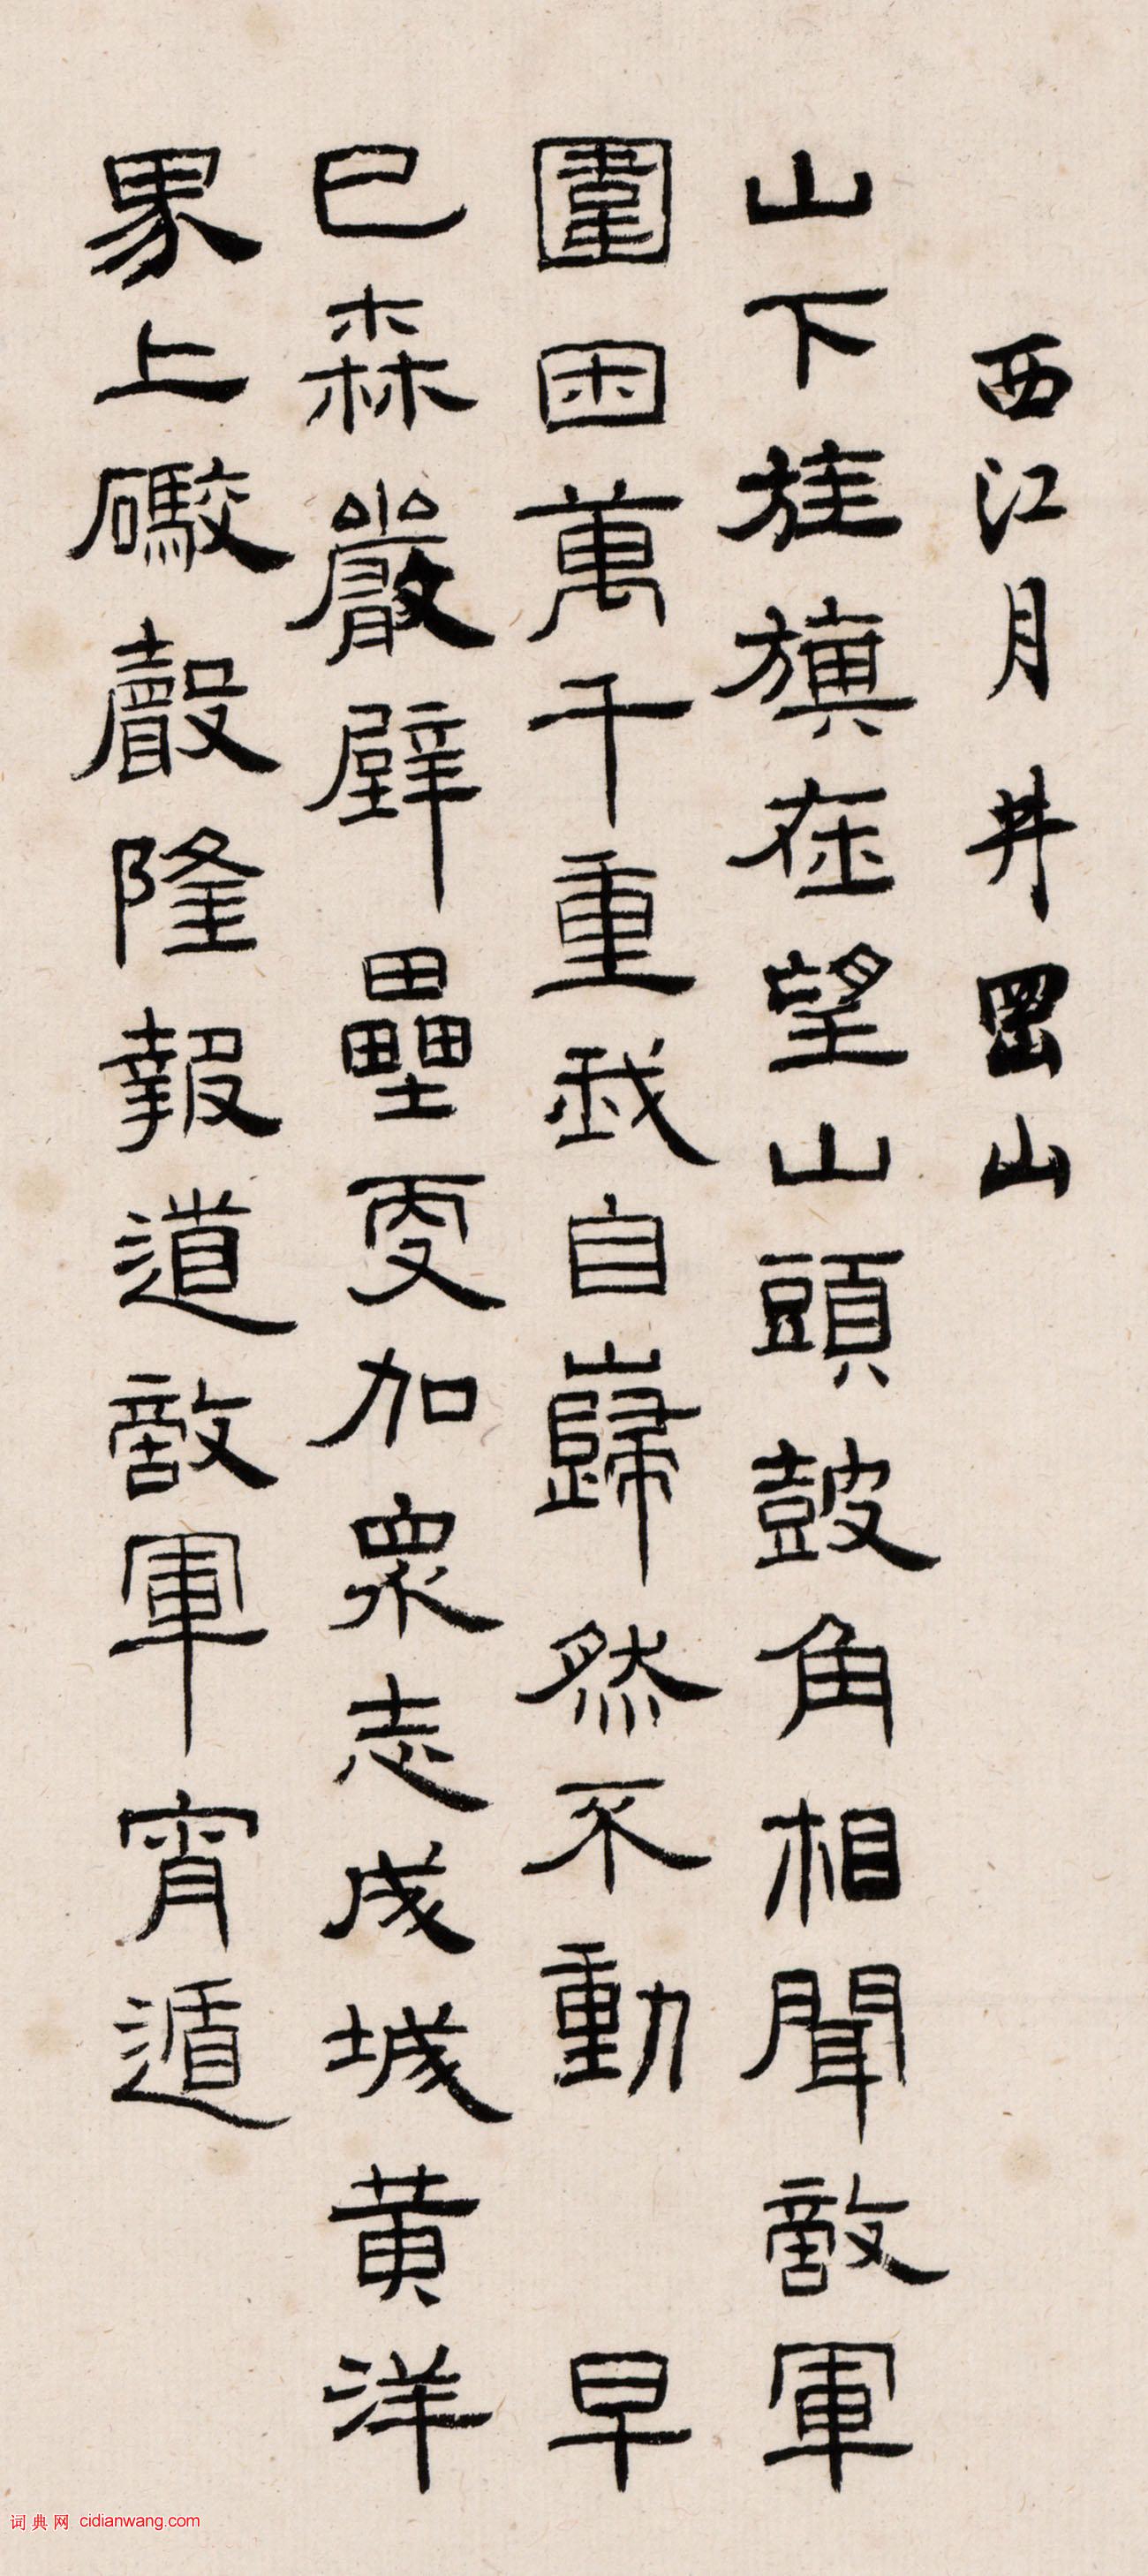 西江月 井岡山
山下旌旗在望山頭鼓角相聞敵軍
圍困萬千重我自巋然不動 早
已森嚴壁壘更加衆志成城黄洋
界上礮聲隆報道敵軍宵遁
词典网 cidianwang.com